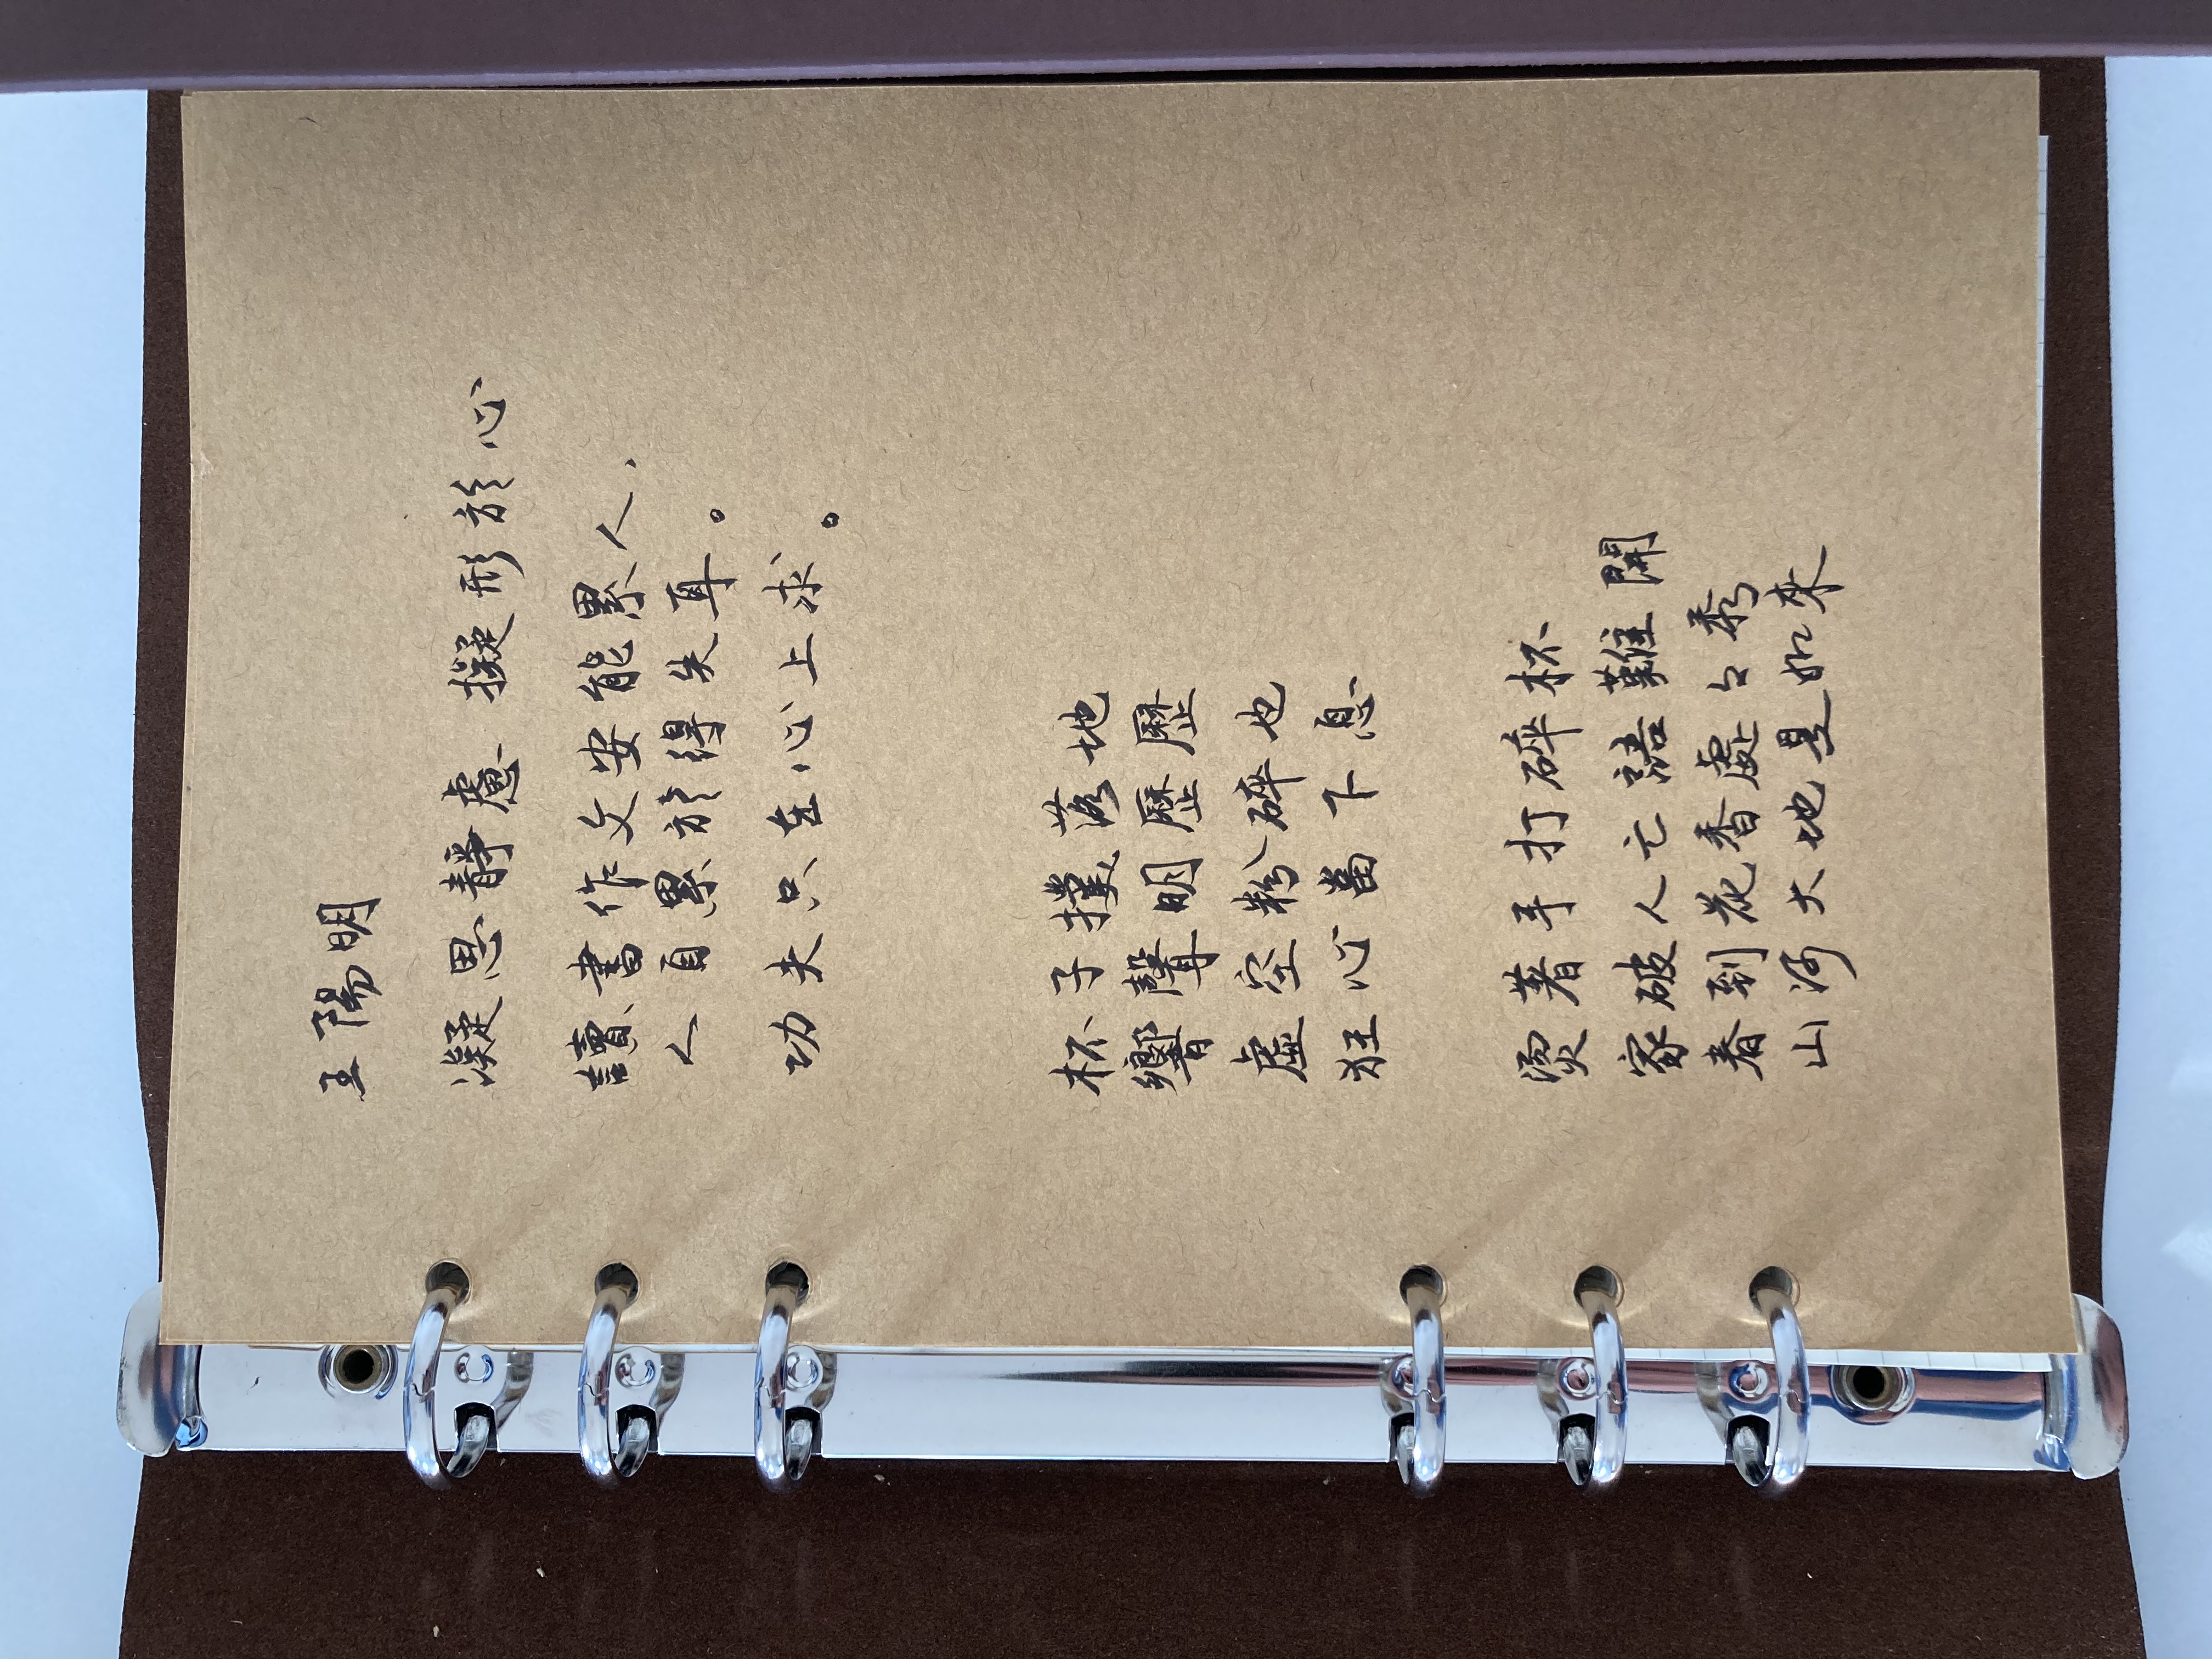 王陽明
凝思靜慮 擬形於心
讀書作文安能累人,
人自累於得失耳。
功夫只在心上求。
杯子撲落地
響聲明歷歷
虛空粉碎也
狂心當下息
燙著手打碎杯
家破人亡語難開
春到花香處々秀
山河大地是如來